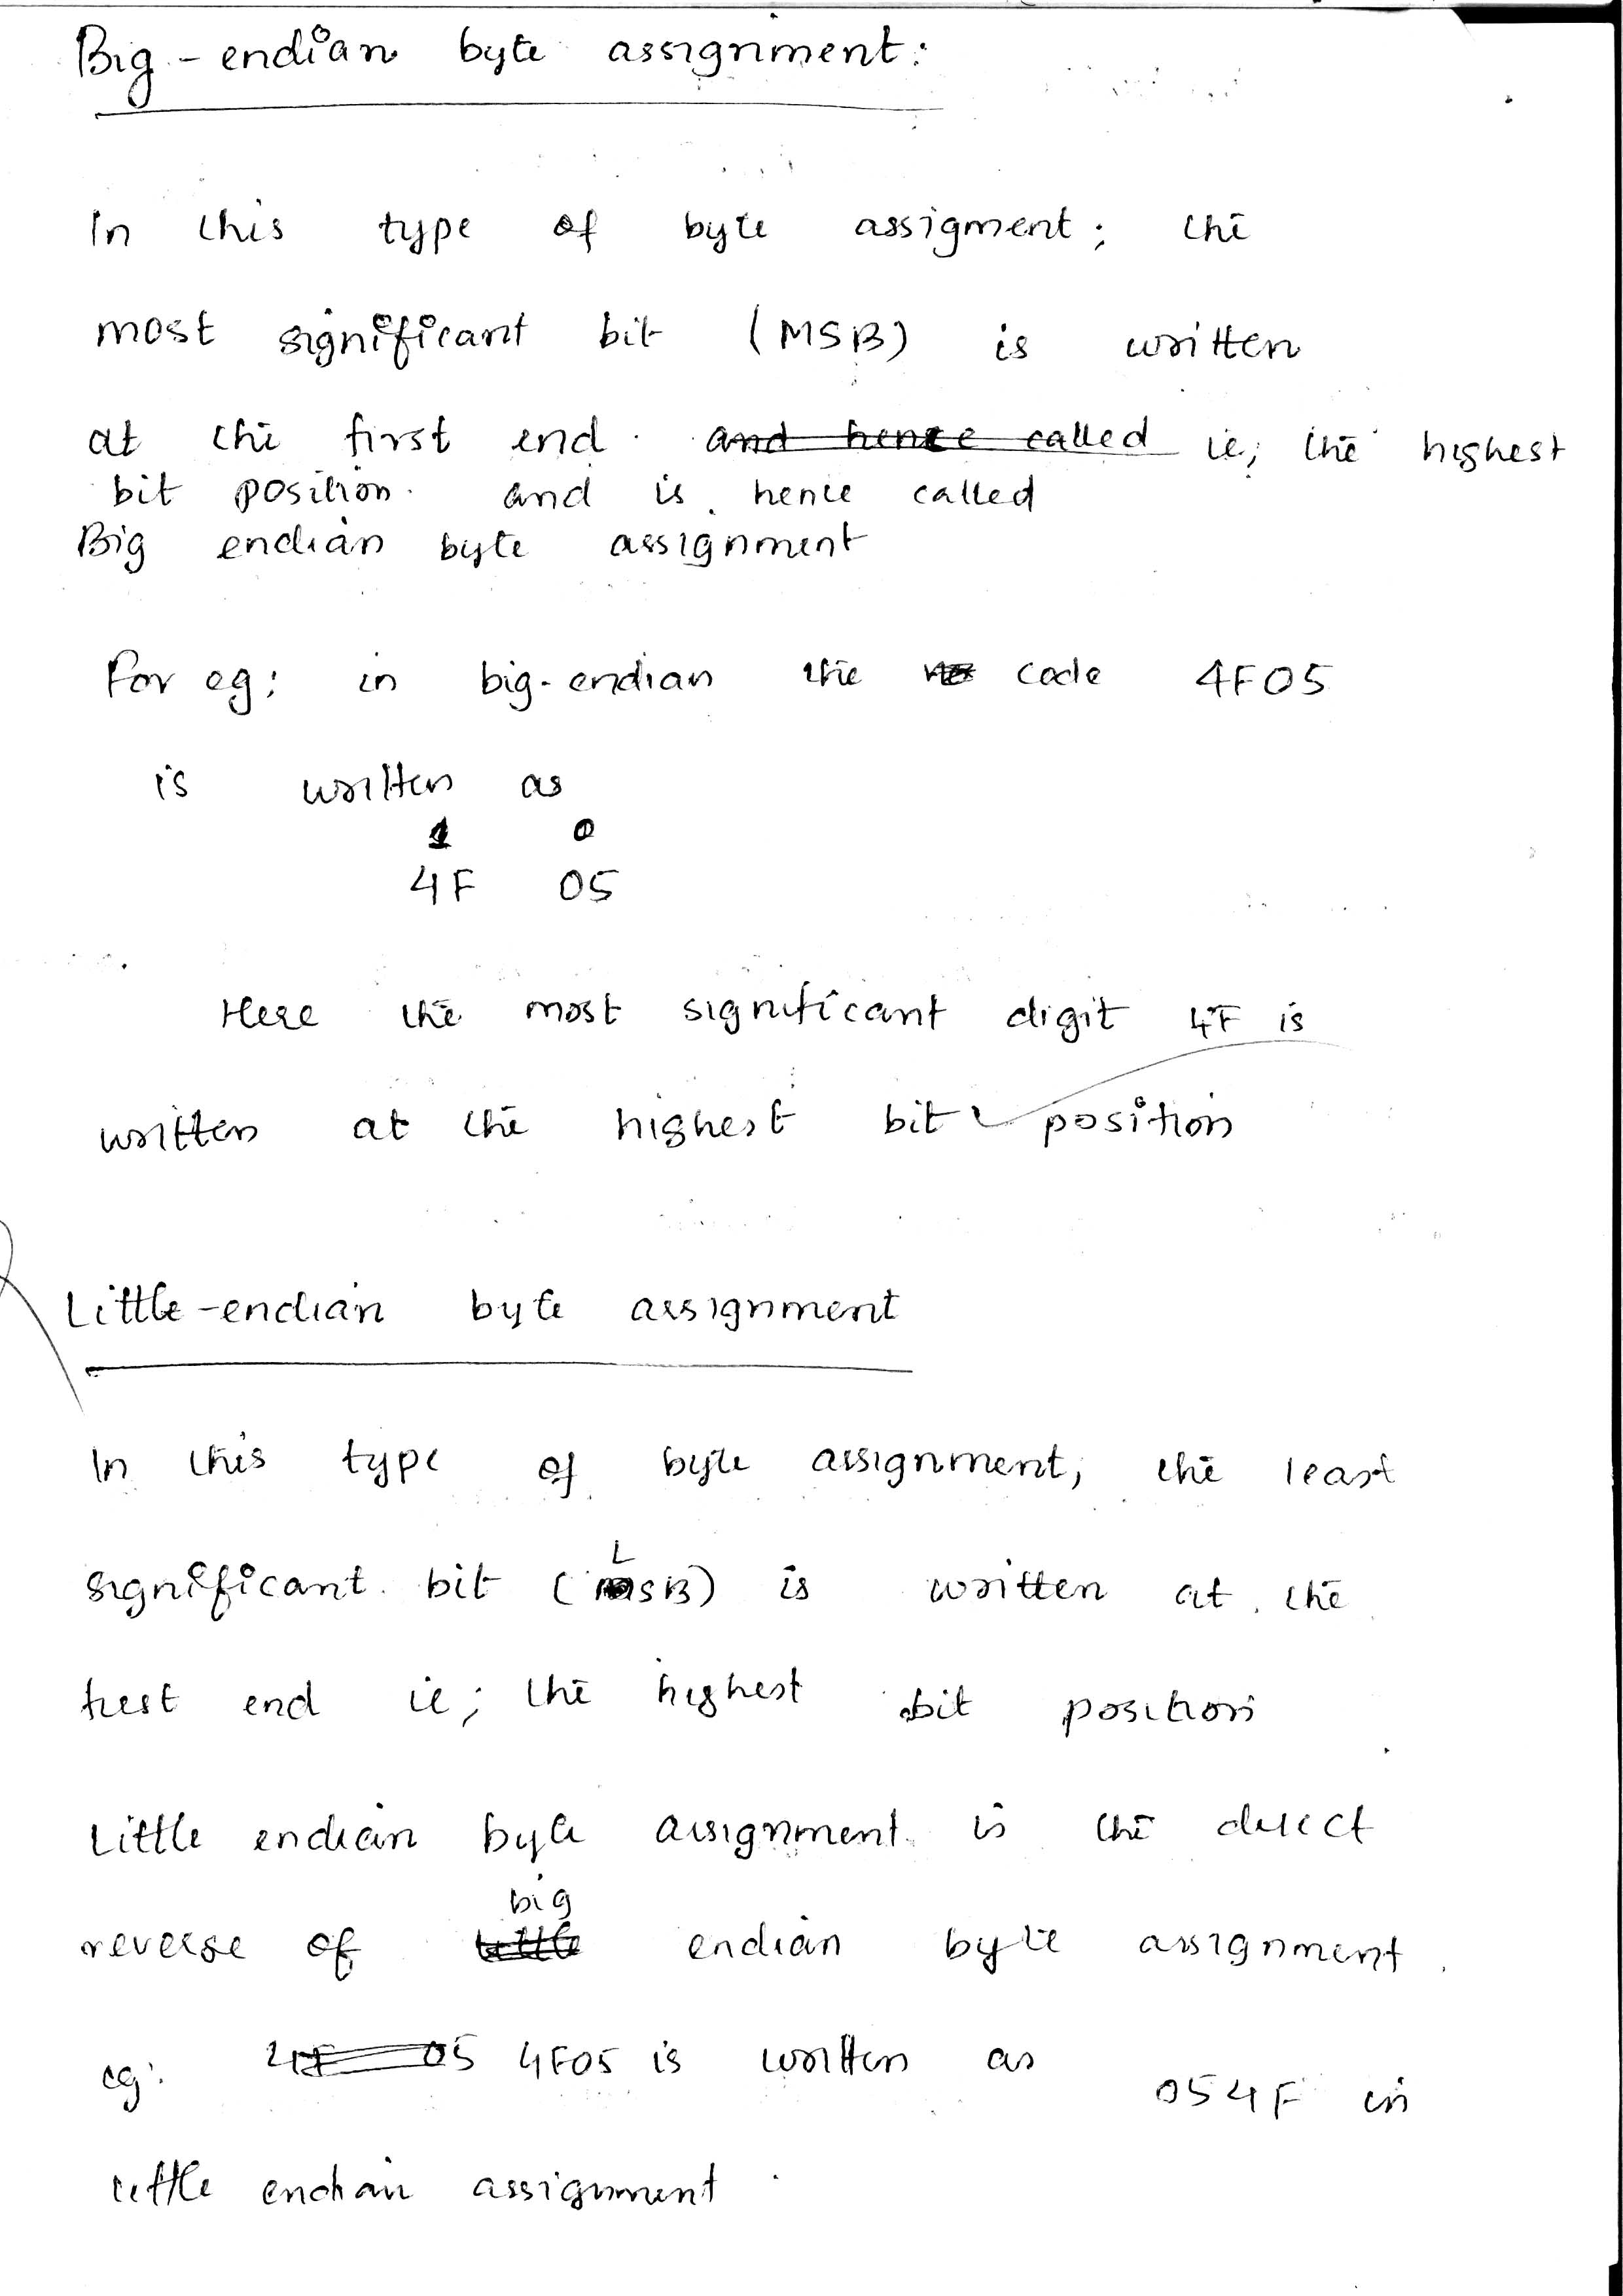 Big-endian byte assignment:
In this type of byte assigment; the
most significant bit (MSB) is written
at the first end. and hence called ie; the highest
bit position. and is hence called
Big endian byte assignment
For eg: in big-endian the code 4F05
is written as
1 0
4F 05
Here the most significant digit 4F is
written at the highest bit position
Little-endian byte assignment
In this type of byte assignment, the least
L
significant bit (SB) is written at the
first end ie; the highest bit position
Little endian byte assignment is the direct
big
reverse of little endian byte assignment.
eg: 4F 05 4F05 is written as 054F in
little endian assignment.